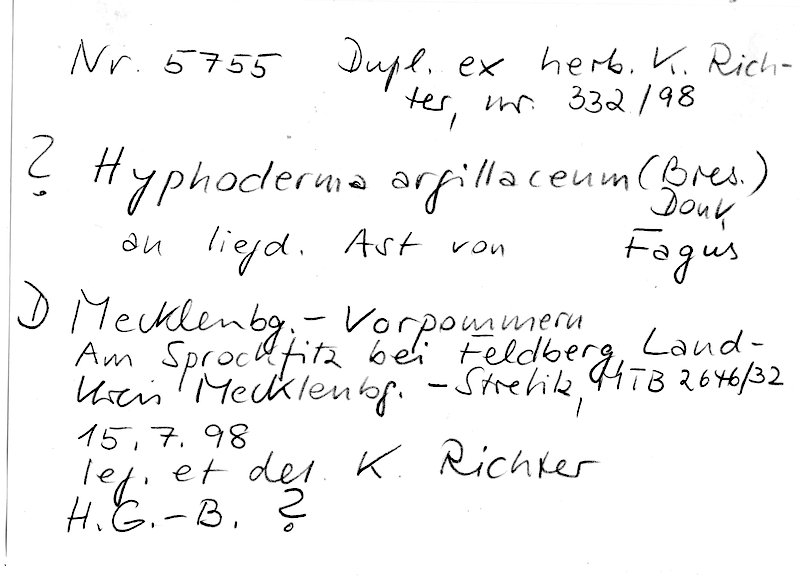 Nr. 5755 Dupl. ex herb. K. Rich-
ter, nr. 332/98
? Hyphoderma argillaceum (Bres.)
Donk,
an liegd. Ast von Fagus
D Mecklenbg.- Vorpommern
Am Sprockfitz bei Feldberg, Land-
kreis Mecklenbg. -Strelitz, MTB 2646/32
15.7.98
leg. et det. K. Richter
H.G.-B. ?